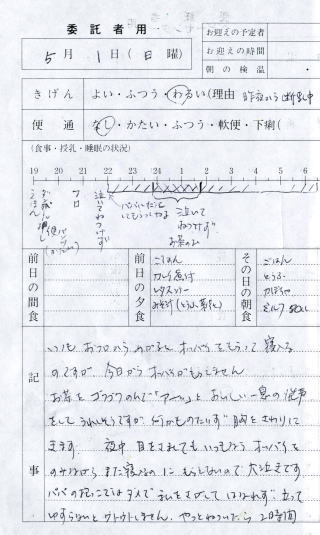 委託者用
5月1日(日曜)
お迎えの予定者
お迎えの時間
朝の検温
きげん よい・ふつう・わるい(理由 昨夜から断乳中
便通 なし・かたい・ふつう・軟便・下痢(
(食事・授乳・睡眠の状況)
19 20 21 22 23 24 1 2 3 4 5 6
フロ
泣いてねつけず
泣いて
ねつけず
お茶のむ
前日の間食
前日の夕食
ごはん
カレイ煮付
レタス
みそ汁
その日の朝食
ごはん
とうふ
かぼちゃ
ミルク 50cc
記事
いつもおフロからあがるとオッパイをもらって寝入る
のですが 今日からオッパイがもらえません
お茶をゴクゴクのんで「アーッ」とおいしい一息の後声
をして うれしそうですが 何かものたりず 胸をさわりに
きます 夜中 目をさましても いつもなら オッパイを
のみながら また寝入るのに もらえないので 大泣きです
パパの抱っこではダメで 私をさがして はなれず 立って
ゆすらないとウトウトしません やっとねついたら 2時間